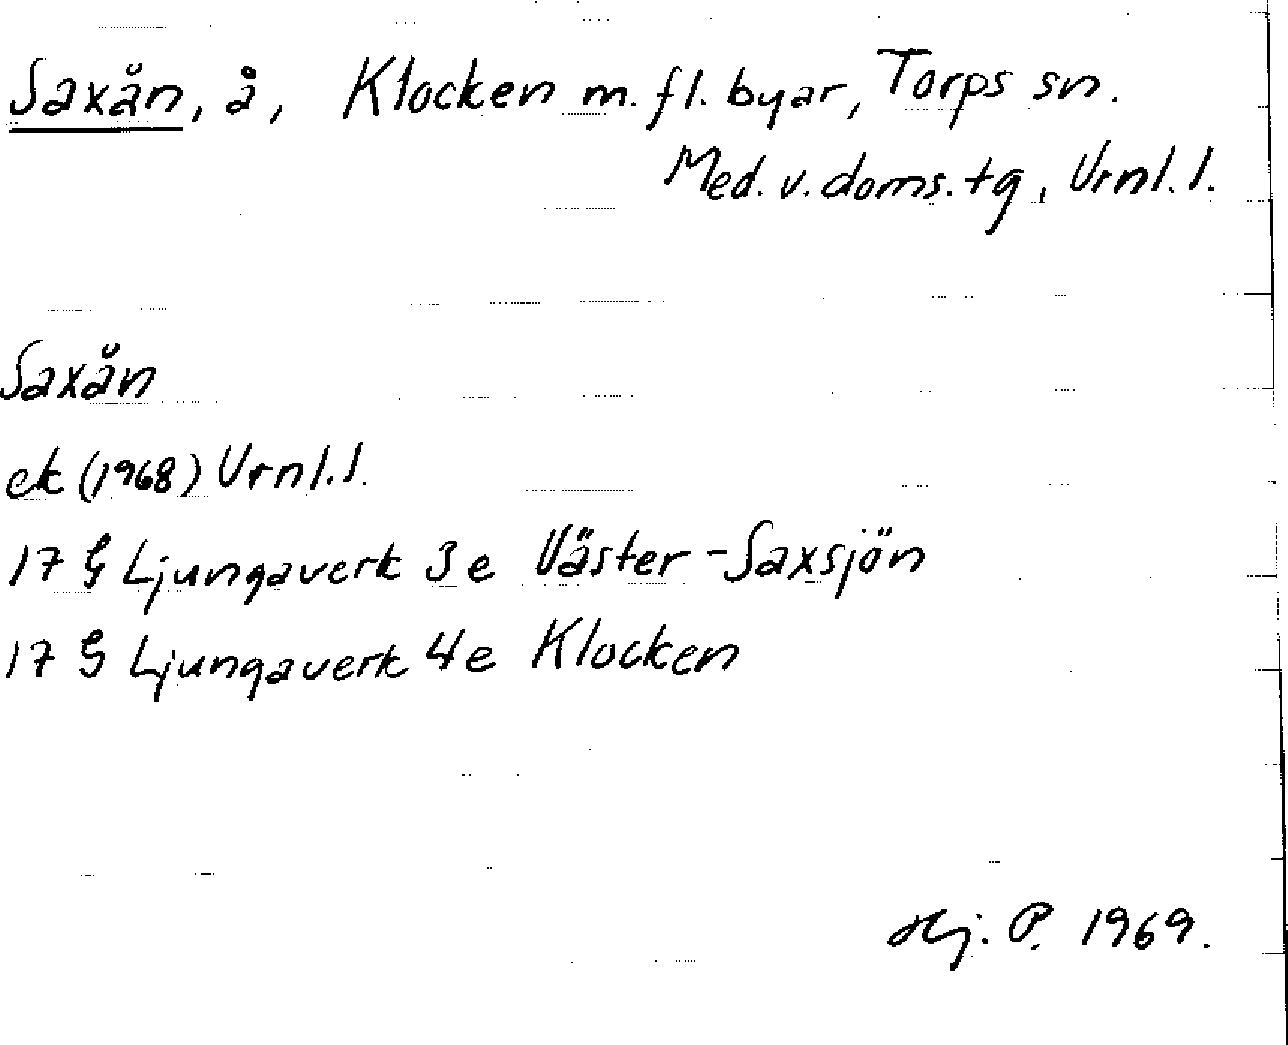 Saxån, å, Klocken m.fl. byar, Torps sn.
Med. v. doms. tg, Vrnl. l.
Saxån
ek (1968) Vrnl. l.
17 G Ljungaverk 3e Väster-Saxsjön
17 G Ljungaverk 4e Klocken
Hj. P. 1969.